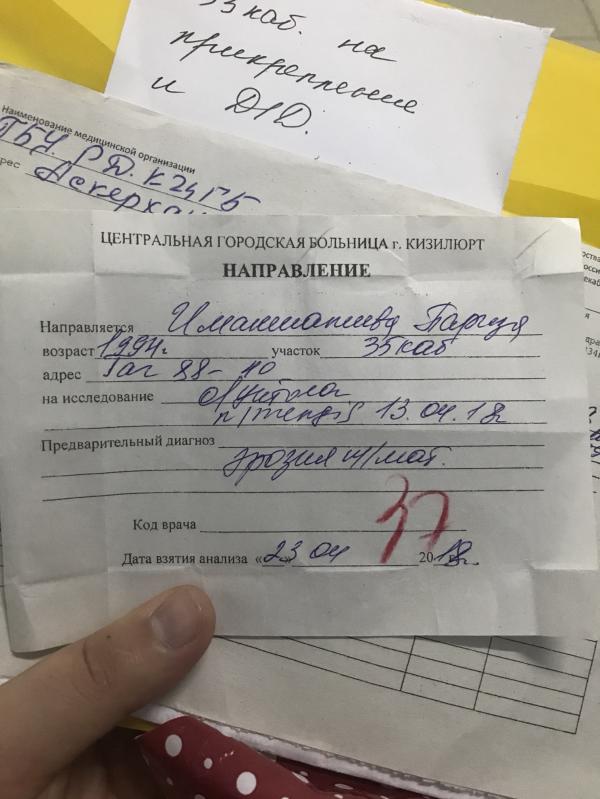 33 каб. на
прикрепление
и Д/Д.
Наименование медицинской организации
ГБУ РД. К
рес Аскерхан
ЦЕНТРАЛЬНАЯ ГОРОДСКАЯ БОЛЬНИЦА г. КИЗИЛЮРТ
НАПРАВЛЕНИЕ
Направляется
возраст 1994г. участок 35 каб
адрес Гаг 88-40
на исследование
п/mensis 13.04.18г
Предварительный диагноз
эрозия ш/мат.
Код врача
37
Дата взятия анализа «23» 04 2018г.